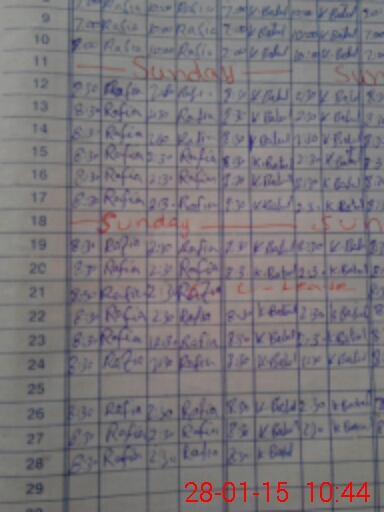 9 7:00 Rafia 10:00 Rafia 7:00 K.Babul 10:00 K.Babul
10 8:00 Rafia 10:00 Rafia 7:00 K.Babul 10:00 K.Babul
11 Sunday Sun
12 8:30 Rafia 2:30 Rafia 8:30 K.Babul 2:30 K.Babul
13 8:30 Rafia 2:30 Rafia 8:30 K.Babul 2:30 K.Babul
14 8:30 Rafia 2:30 Rafia 8:30 K.Babul 2:30 K.Babul
15 8:30 Rafia 2:30 Rafia 8:30 K.Babul 2:30 K.Babul
16 8:30 Rafia 2:30 Rafia 8:30 K.Babul 2:30 K.Babul
17 8:30 Rafia 2:30 Rafia 8:30 K.Babul 2:30 K.Babul
18 Sunday Sun
19 8:30 Rafia 2:30 Rafia 8:30 K.Babul 2:30 K.Babul
20 8:30 Rafia 2:30 Rafia 8:30 K.Babul 2:30 K.Babul
21 8:30 Rafia 2:30 Rafia C-Leave
22 8:30 Rafia 2:30 Rafia 8:30 K.Babul 2:30 K.Babul
23 8:30 Rafia Rafia 8:30 K.Babul 2:30 K.Babul
24 8:30 Rafia 2:30 Rafia 8:30 K.Babul 2:30 K.Babul
25
26 8:30 Rafia 2:30 Rafia 8:30 K.Babul 2:30 K.Babul
27 8:30 Rafia 2:30 Rafia 8:30 K.Babul K.Babul
28 8:30 Rafia 2:30 Rafia 8:30 K.Babul
29
28-01-15 10:44